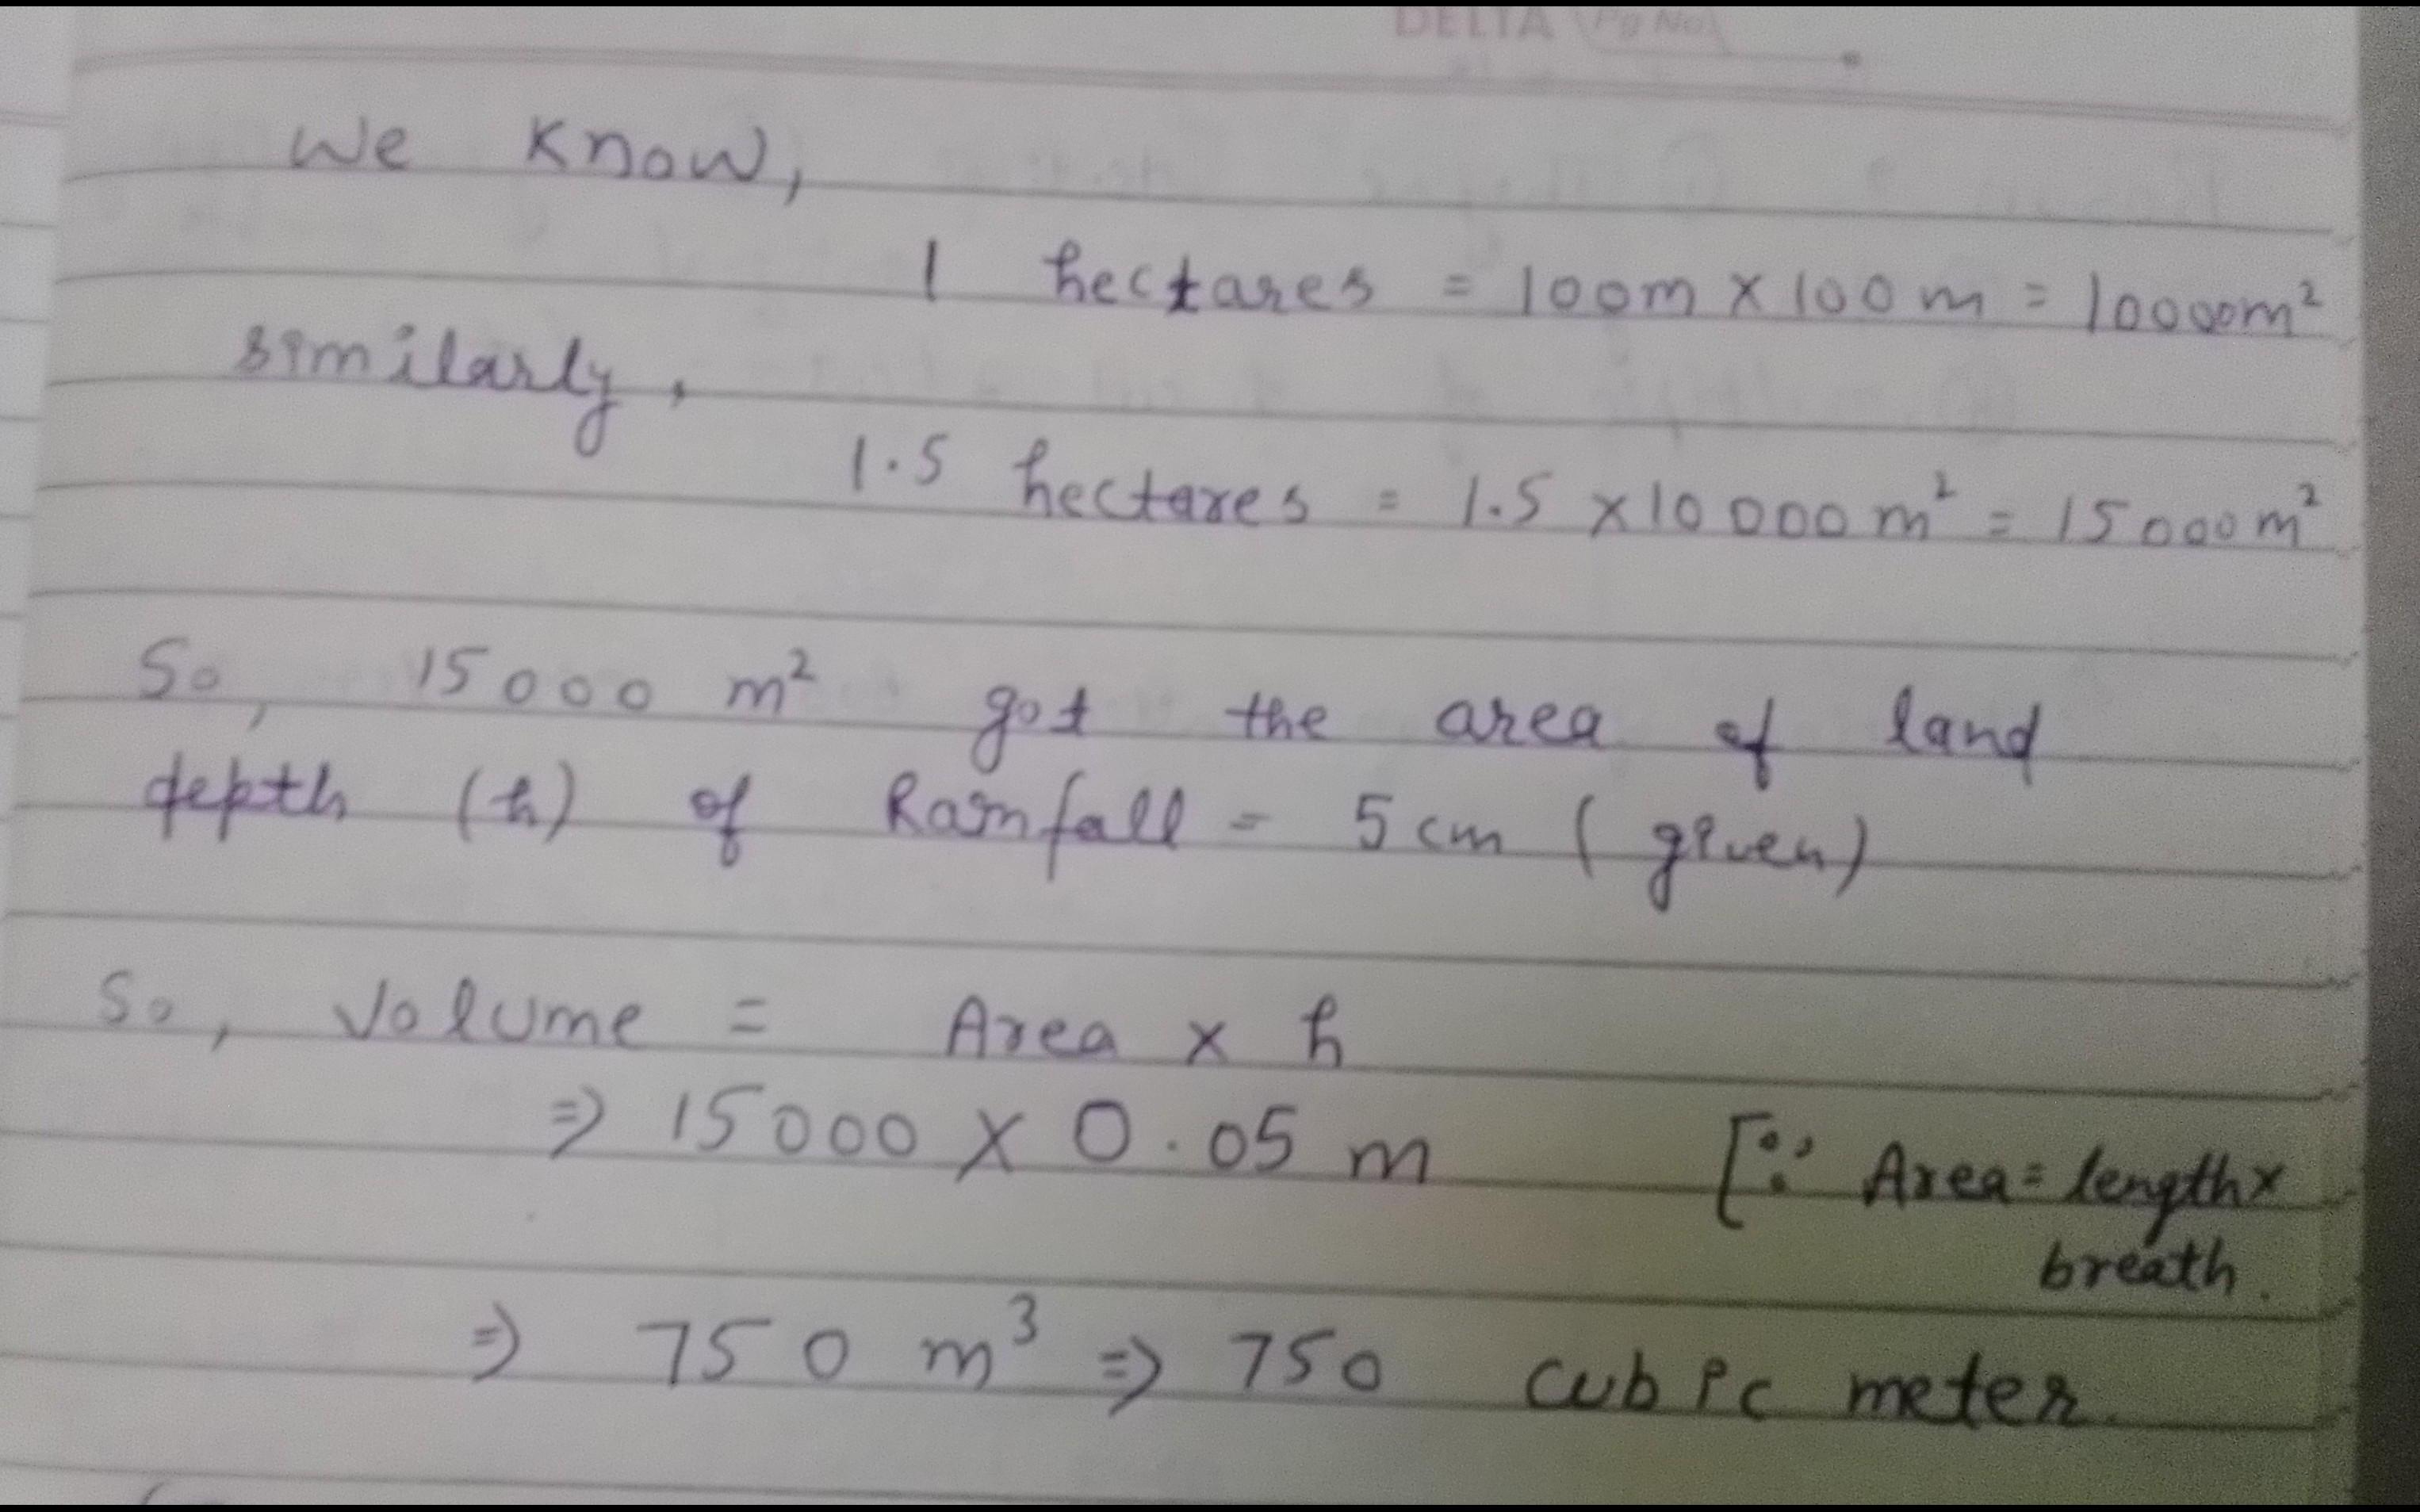 DELTA Pg No.
We know,
1 hectares = 100m × 100m = 10000m²
similarly,
1.5 hectares = 1.5 × 10000m² = 15000m²
So, 15000 m² got the area of land
depth (h) of Rainfall = 5 cm (given)
So, Volume = Area × h
⇒ 15000 × 0.05 m [∵ Area = length ×
breath.
⇒ 750 m³ ⇒ 750 cubic meter.